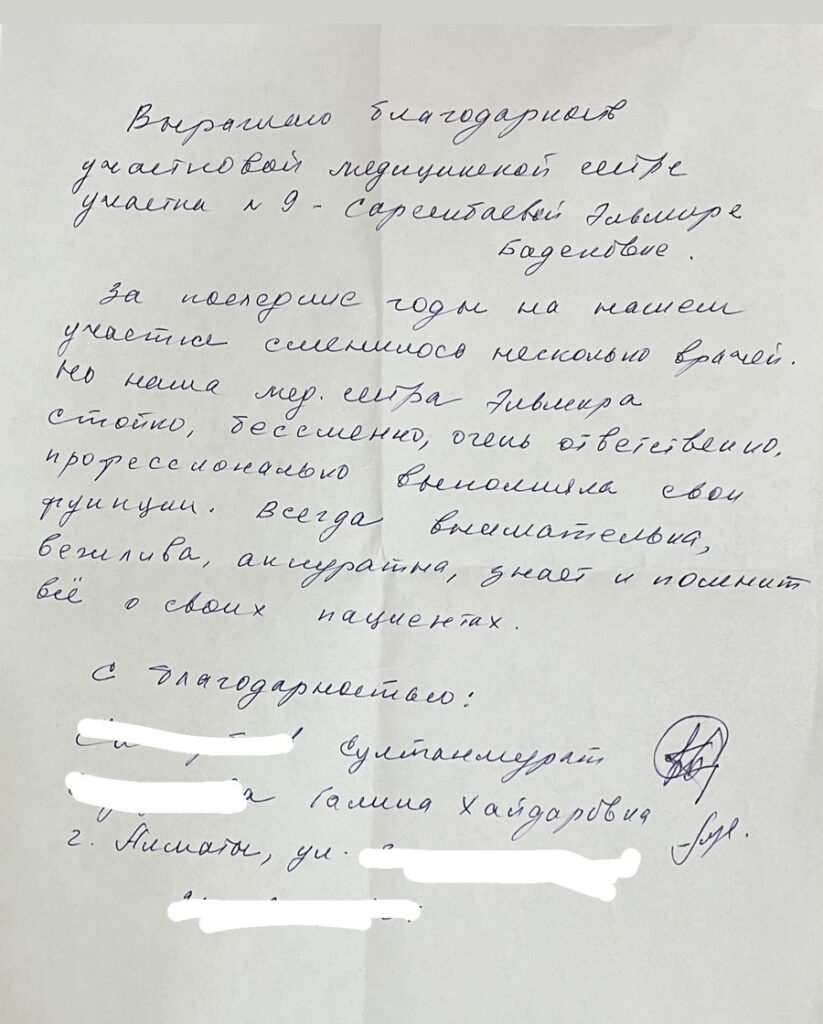 Выражаю благодарность
участковой медицинской сестре
участка № 9 - Сарсенбаевой Эльмире
Баденовне.
За последние годы на нашем
участке сменилось несколько врачей.
Но наша мед. сестра Эльмира
стойко, бессменно, очень ответственно,
профессионально выполняла свои
функции. Всегда внимательна,
вежлива, аккуратна, знает и помнит
всё о своих пациентах.
С благодарностью:
Султанмурат
Галина Хайдаровна
г. Алматы, ул.